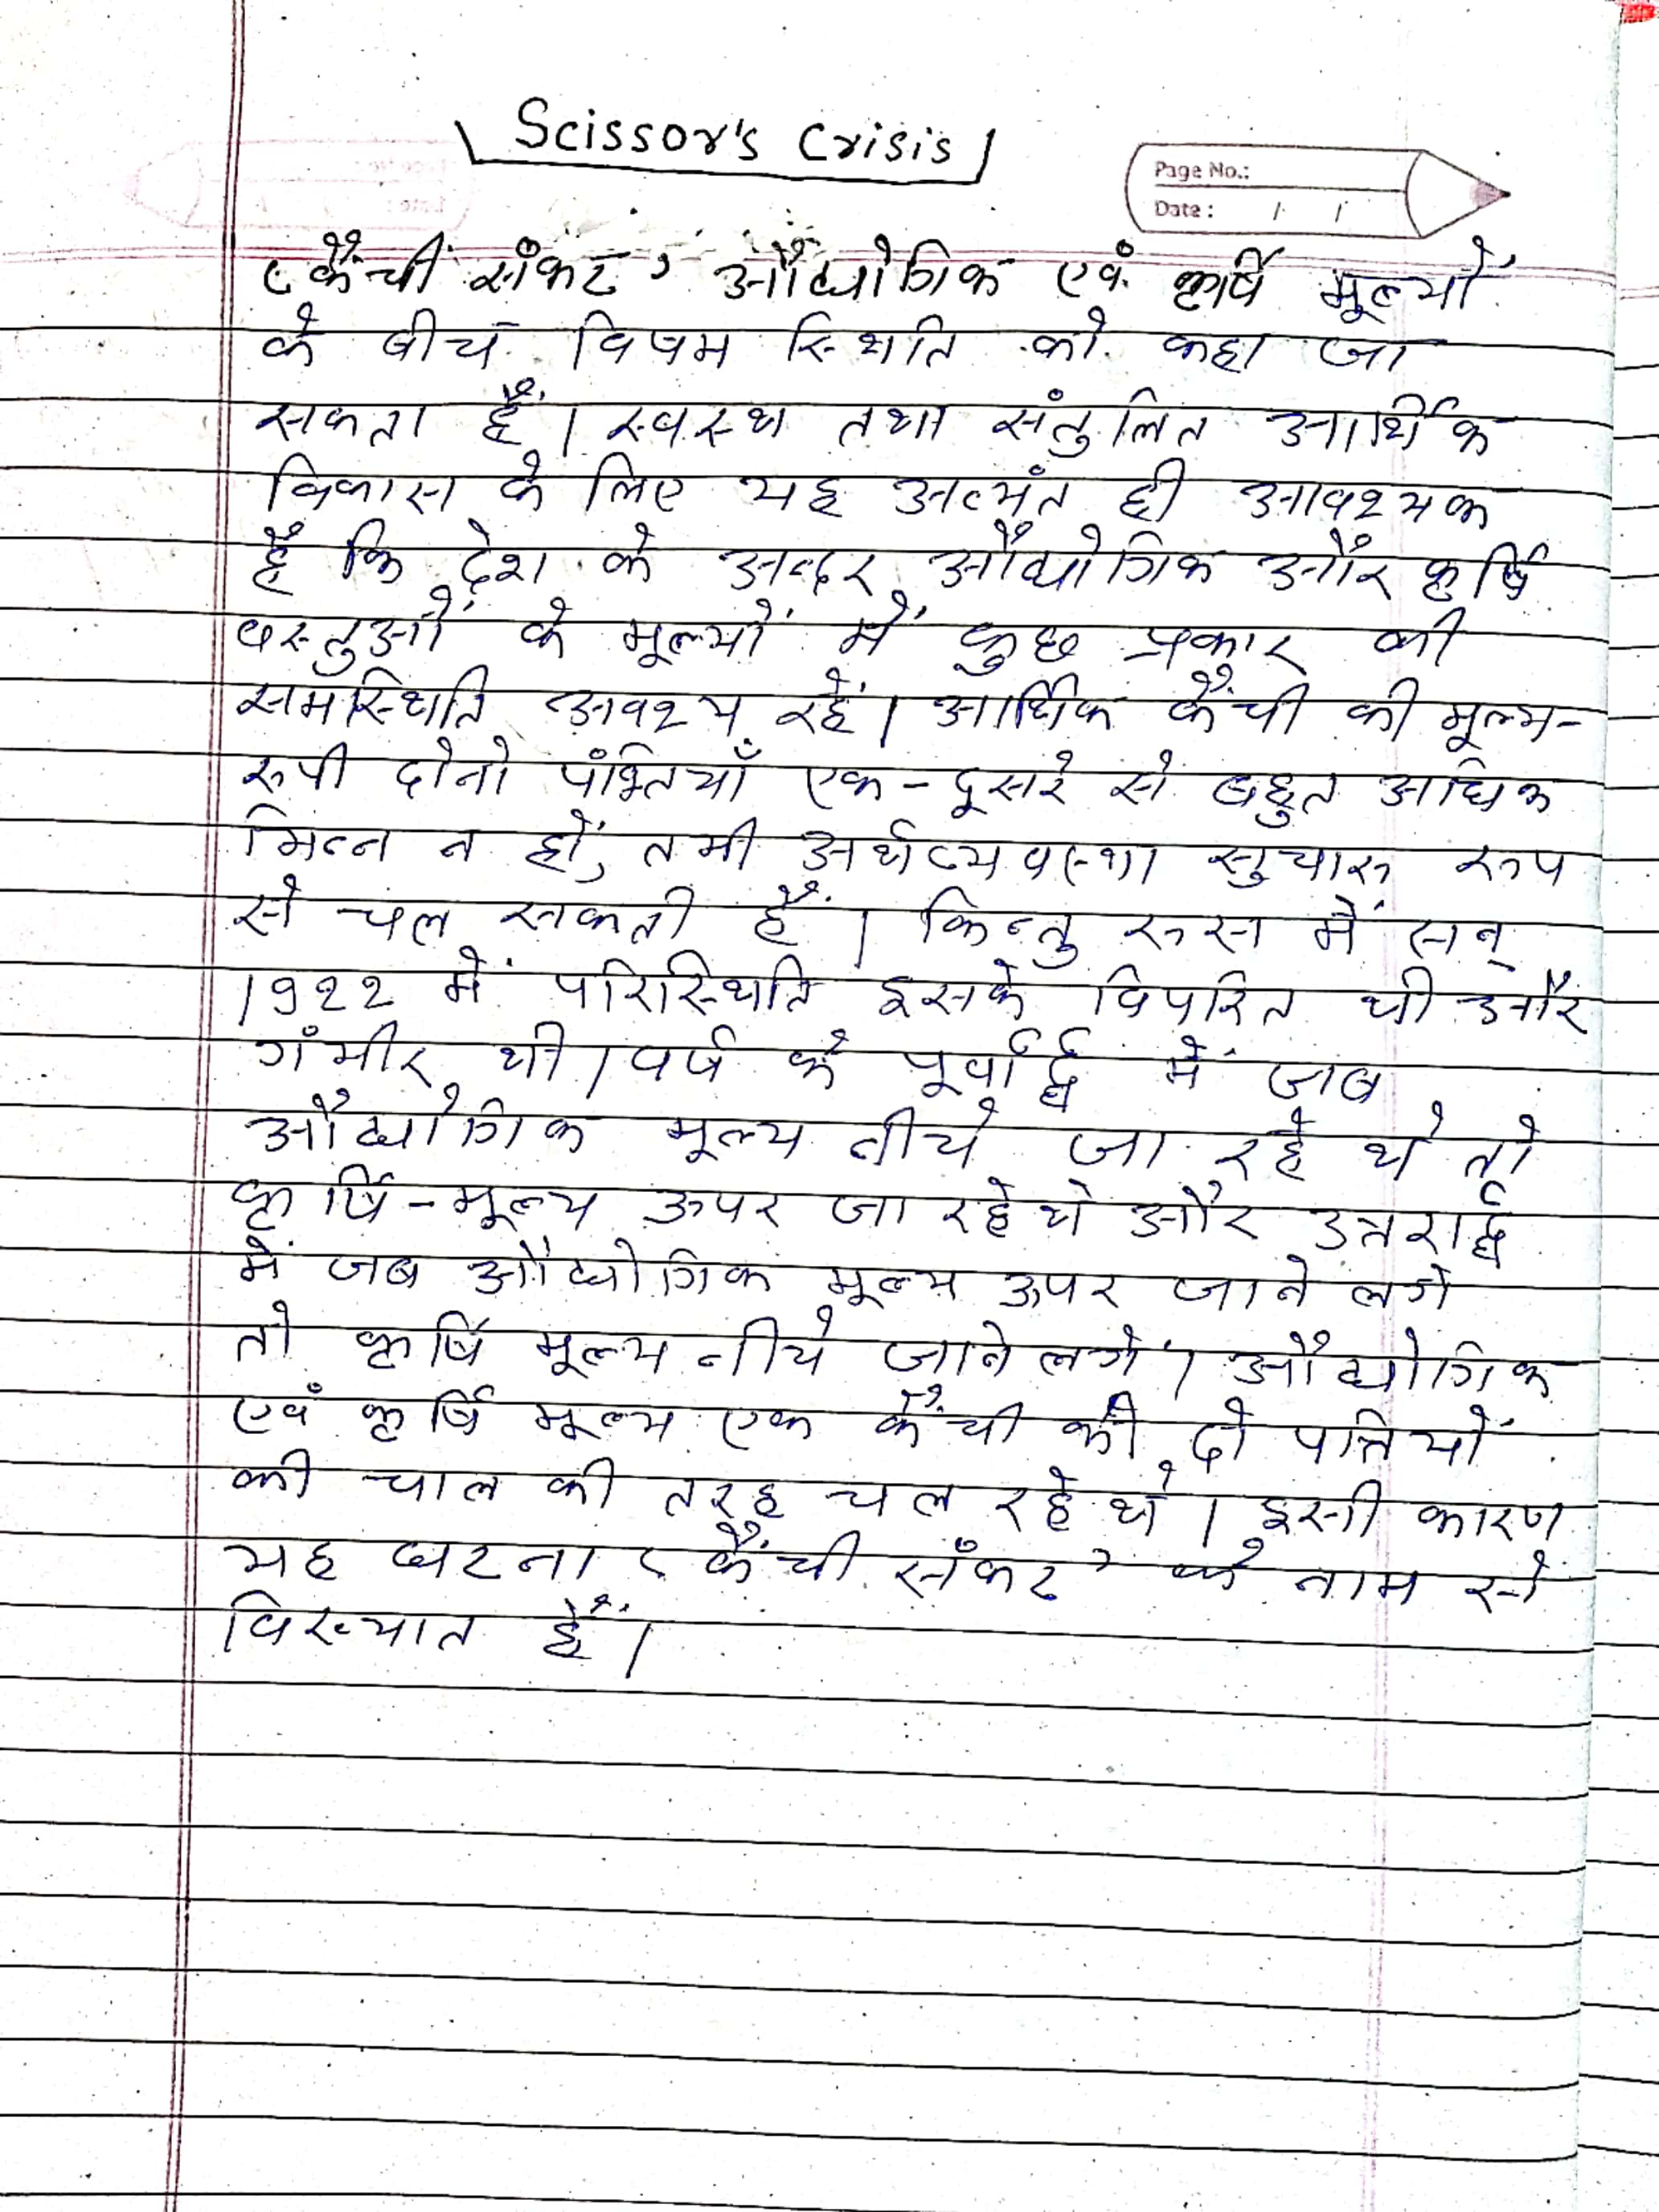 Scissor's Crisis
Page No.:
Date: / /
'कैंची संकट' औद्योगिक एवं कृर्षि मूल्यों
के बीच विषम स्थिति को कहा जा
सकता हैं। स्वस्थ तथा संतुलित आर्थिक
विकास के लिए यह अत्यंत ही आवश्यक
है कि देश के अन्दर औद्योगिक और कृर्षि
वस्तुओं के मूल्यों में कुछ प्रकार की
समस्थिति अवश्य रहें। आर्थिक कैंची की मूल्य-
रुपी दोनो पंक्तियाँ एक-दूसरे से बहुत अधिक
भिन्न न हों, तभी अर्थव्यवस्था सुचारु रुप
से चल सकती हैं। किन्तु रुस में सन्
1922 में परिस्थिति इसके विपरित थी और
गंभीर थी। वर्ष के पूर्वार्द्ध में जब
औद्योगिक मूल्य नीचे जा रहे थे तो
कृर्षि-मूल्य ऊपर जा रहे थे और उत्तरार्द्ध
में जब औद्योगिक मूल्य ऊपर जाने लगे
तो कृर्षि मूल्य नीचे जाने लगे। औद्योगिक
एवं कृर्षि मूल्य एक कैंची की दो पत्तियों
की चाल की तरह चल रहे थे। इसी कारण
यह घटना 'कैंची संकट' के नाम से
विख्यात हैं।